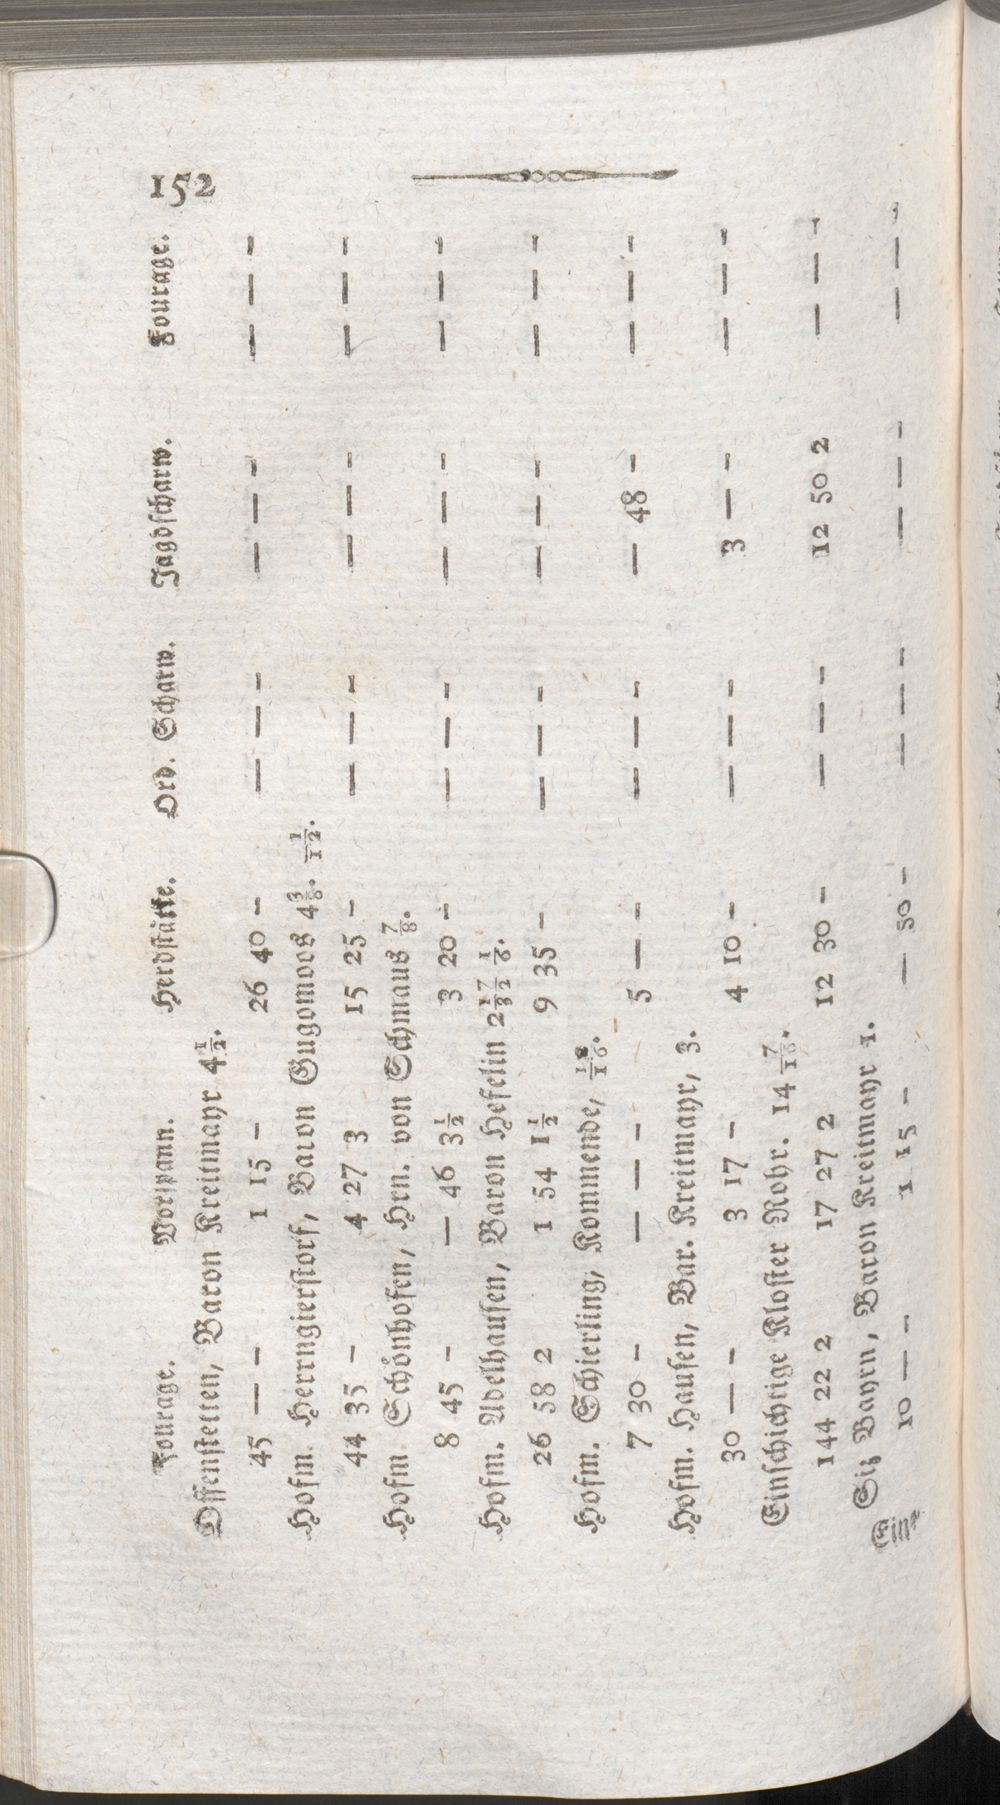 152
Fourage. Vorspann. Herdstätte. Ord. Scharw. Jagdscharw. Fourage.
Offenstetten, Baron Kreitmayr 4 1/2.
45 — - 1 15 - 26 40 - — — - — — - — — -
Hofm. Herrngierstorf, Baron Gugomoos 4 3/8. 1/12.
44 35 - 4 27 3 15 25 - — — - — — - — — -
Hofm. Schönhofen, Hrn. von Schmaus 7/8.
8 45 - — 46 3 1/2 3 20 - — — - — — - — — -
Hofm. Adelhausen, Baron Hefelin 2 17/32 1/6.
26 58 2 1 54 1 1/2 9 35 - — — - — — - — — -
Hofm. Schierling, Kommende,
7 30 - — — - 5 — - — — - — 48 - — — -
Hofm. Hausen, Bar. Kreitmayr, 3.
30 — - 3 17 - 4 10 - — — - 3 — - — — -
Einschichtige Kloster Rohr. 14 7/16.
144 22 2 17 27 2 12 30 - — — - 12 50 2 — — -
Siz Bayrn, Baron Kreitmayr 1.
10 — - 1 15 - — 50 - — — - — — - — — -
Ein-